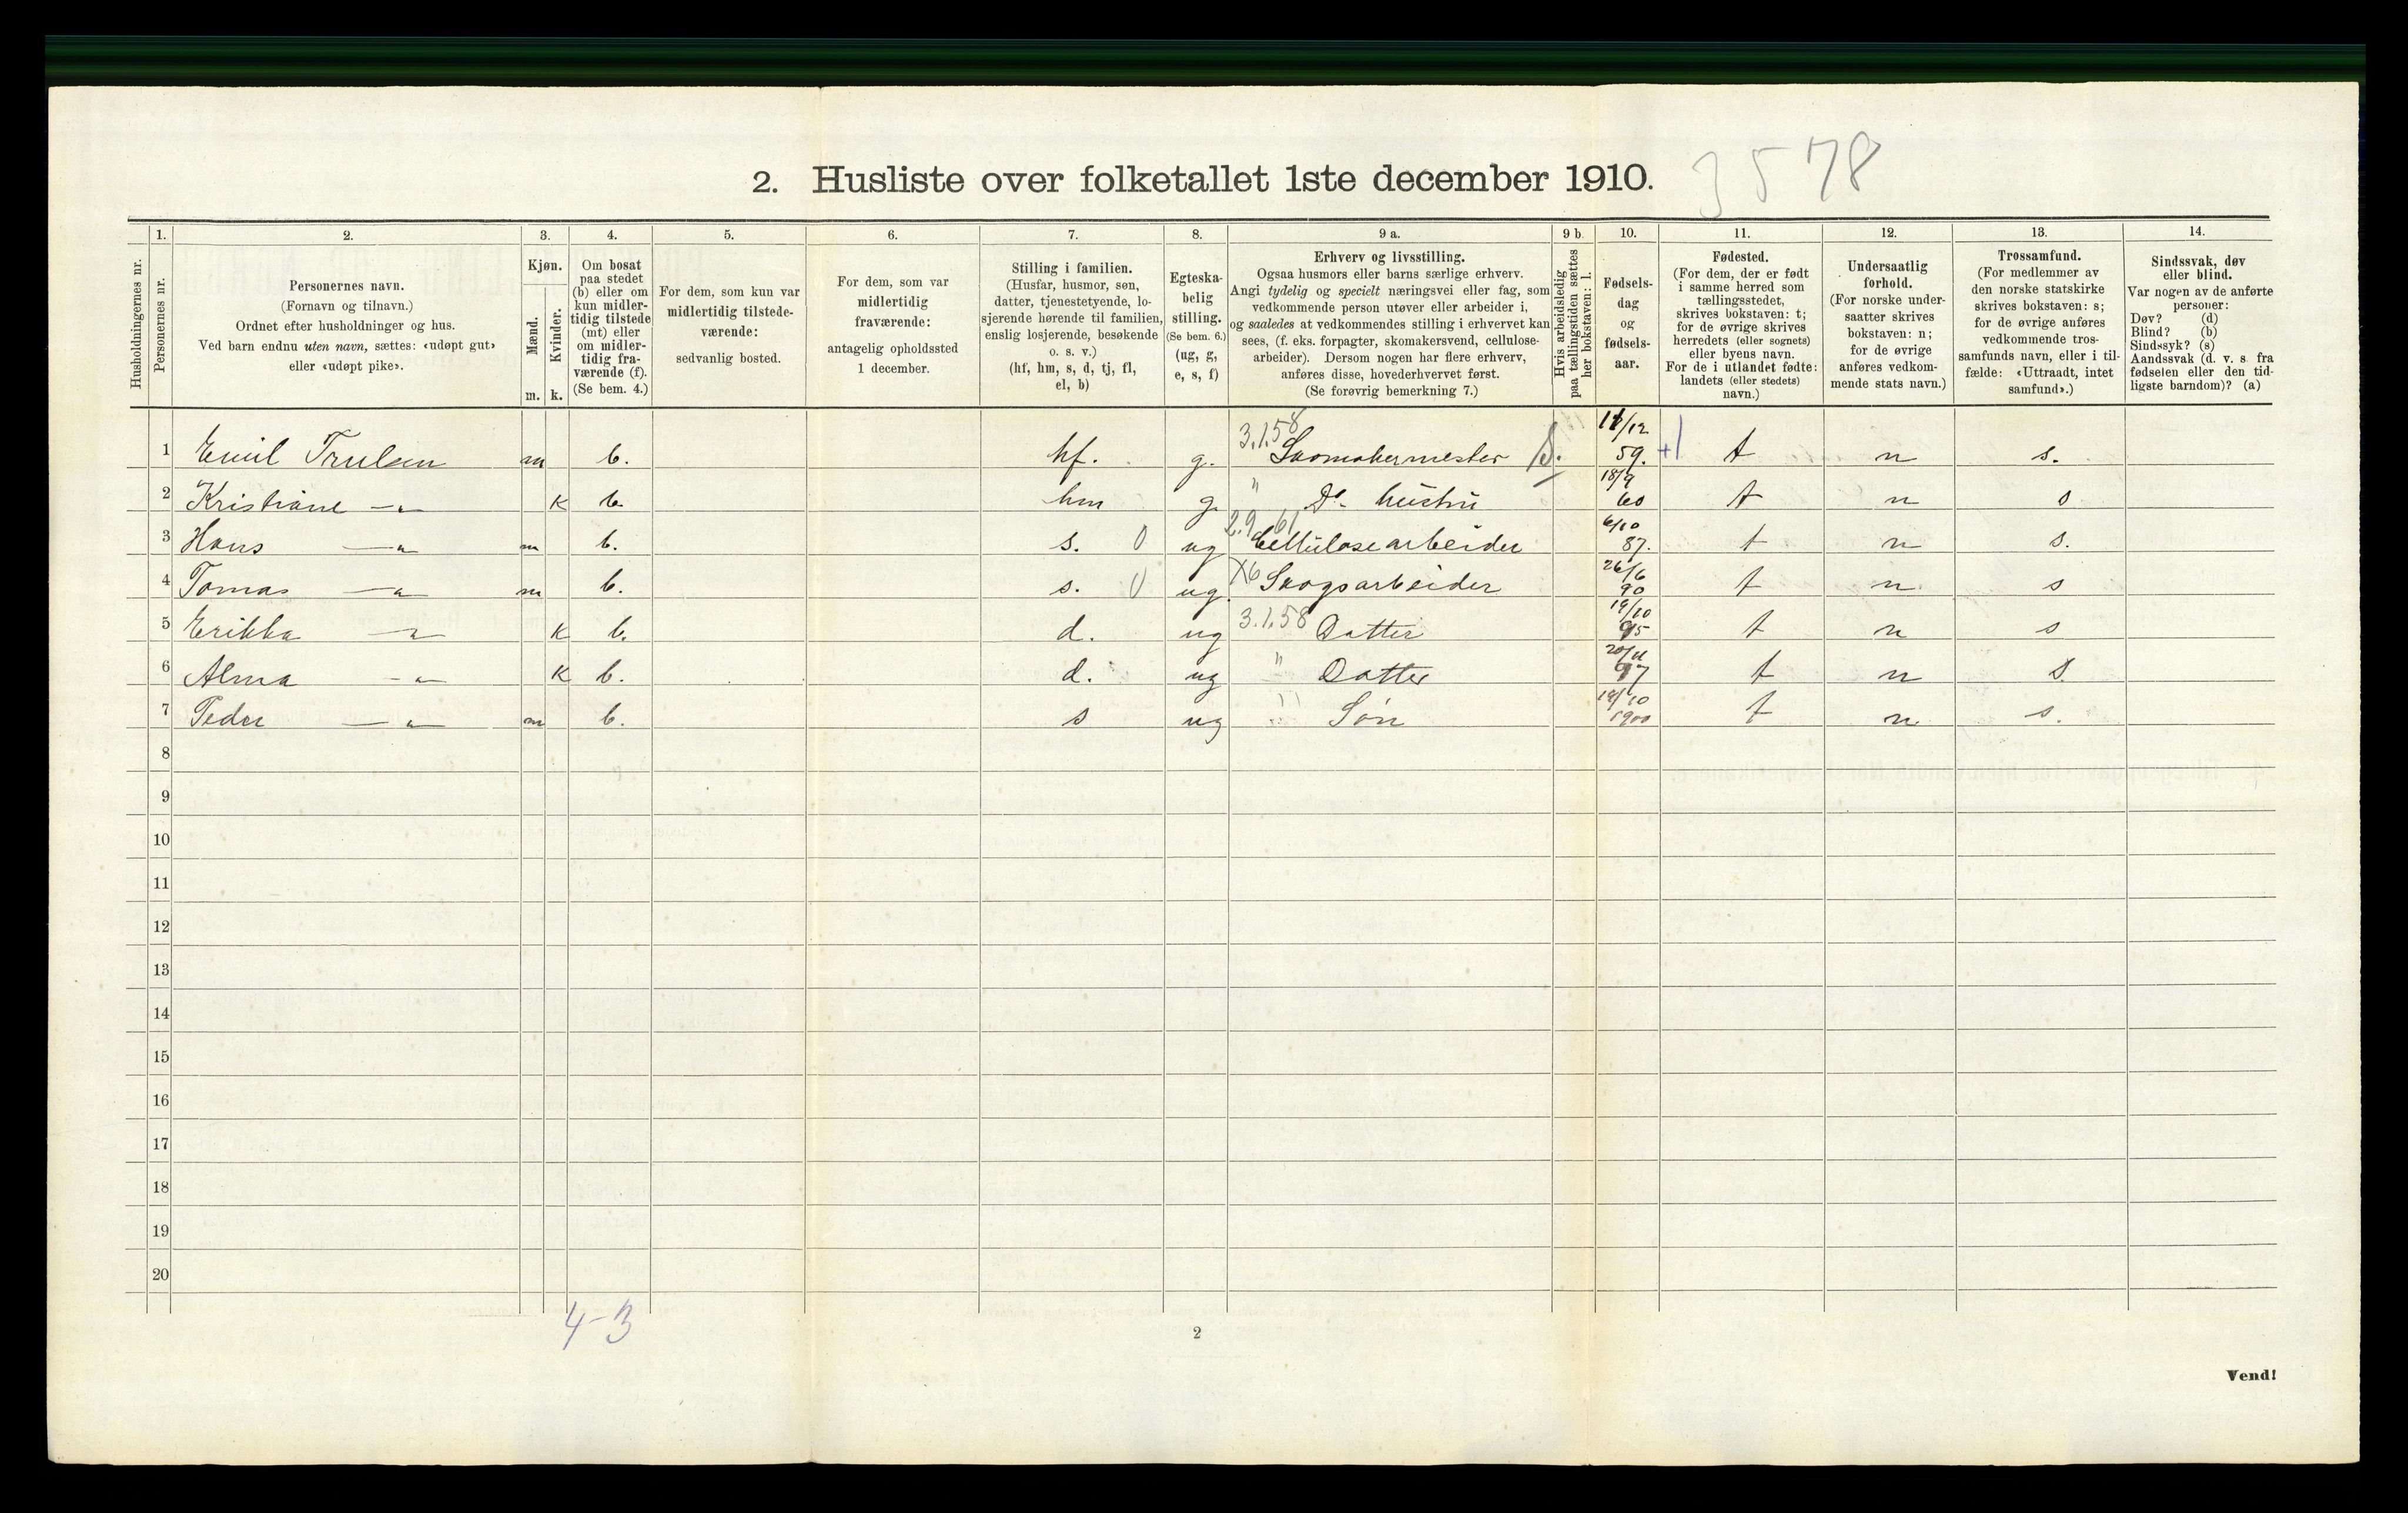 2. Husliste over folketallet 1ste december 1910. 3578
1. 2. 3. 4. 5. 6. 7. 8. 9 a. 9 b. 10. 11. 12. 13. 14.
Husholdningernes nr.
Personernes nr.
Personernes navn.
(Fornavn og tilnavn.)
Ordnet efter husholdninger og hus.
Ved barn endnu uten navn, sættes: «udøpt gut»
eller «udøpt pike».
Kjøn.
Mænd.
Kvinder.
m. k.
Om bosat
paa stedet
(b) eller om
kun midler-
tidig tilstede
(mt) eller
om midler-
tidig fra-
værende (f).
(Se bem. 4.)
For dem, som kun var
midlertidig tilstede-
værende:
sedvanlig bosted.
For dem, som var
midlertidig
fraværende:
antagelig opholdssted
1 december.
Stilling i familien.
(Husfar, husmor, søn,
datter, tjenestetyende, lo-
sjerende hørende til familien,
enslig losjerende, besøkende
o. s. v.)
(hf, hm, s, d, tj, fl,
el, b)
Egteska-
belig
stilling.
(Se bem. 6.)
(ug, g,
e, s, f)
Erhverv og livsstilling.
Ogsaa husmors eller barns særlige erhverv.
Angi tydelig og specielt næringsvei eller fag, som
vedkommende person utøver eller arbeider i,
og saaledes at vedkommendes stilling i erhvervet kan
sees, (f. eks. forpagter, skomakersvend, cellulose-
arbeider). Dersom nogen har flere erhverv,
anføres disse, hovederhvervet først.
(Se forøvrig bemerkning 7.)
Hvis arbeidsledig
paa tællingstiden sættes
her bokstaven: l.
Fødsels-
dag
og
fødsels-
aar.
Fødested.
(For dem, der er født
i samme herred som
tællingsstedet,
skrives bokstaven: t;
for de øvrige skrives
herredets (eller sognets)
eller byens navn.
For de i utlandet fødte:
landets (eller stedets)
navn.)
Undersaatlig
forhold.
(For norske under-
saatter skrives
bokstaven: n;
for de øvrige
anføres vedkom-
mende stats navn.)
Trossamfund.
(For medlemmer av
den norske statskirke
skrives bokstaven: s;
for de øvrige anføres
vedkommende tros-
samfunds navn, eller i til-
fælde: «Uttraadt, intet
samfund».)
Sindssvak, døv
eller blind.
Var nogen av de anførte
personer:
Døv? (d)
Blind? (b)
Sindssyk? (s)
Aandssvak (d. v. s. fra
fødselen eller den tid-
ligste barndom)? (a)
3.1.58
1 Emil Trulsen m b. hf. g. Skomakermester S. 11/12 59. +1 t n s.
2 Kristiane —"— k b. hm g. " Do hustru 18/9 60 t n s
2.9 61
3 Hans —"— m b. s. 0 ug Cellulosearbeider 6/10 87. t n s.
4 Tomas —"— m b. s. 0 ug. X6 Skogsarbeider 26/6 90 t n s
5 Erikka —"— k b. d. ug 3.1.58 Datter 19/10 95 t n s
6 Alma —"— k b. d. ug " Datter 20/11 97 t n s.
7 Peder —"— m b. s ug " Søn 19/10 1900 t n s.
8
9
10
11
12
13
14
15
16
17
18
19
20
4-3
2
Vend!